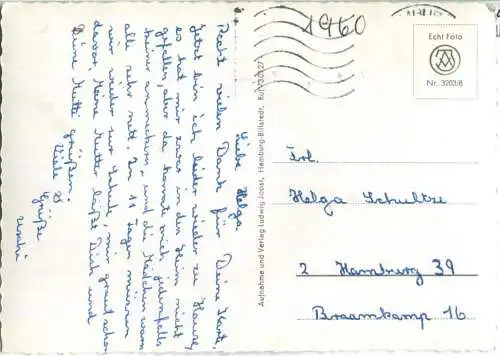 1960
Liebe Helga.
Recht vielen Dank für Deine Karte.
Jetzt bin ich leider wieder zu Hause,
es hat mir zwar in den Heim nicht
gefallen, aber da konnte mich jedenfalls
keiner anmeckern und die Mädchen waren
alle sehr nett. In 14 Tagen müssen
wir wieder zur Schule, mir graut schon
davor. Meine Mutter läßt Dich und
Deine Mutti grüßen.
Viele
Grüße
Uschi
Aufnahme und Verlag Ludwig Joost, Hamburg-Billstedt, Ruf
Echt Foto
Nr. 3202/8
Frl.
Helga Schultze
2 Hamburg 39
Braamkamp 16